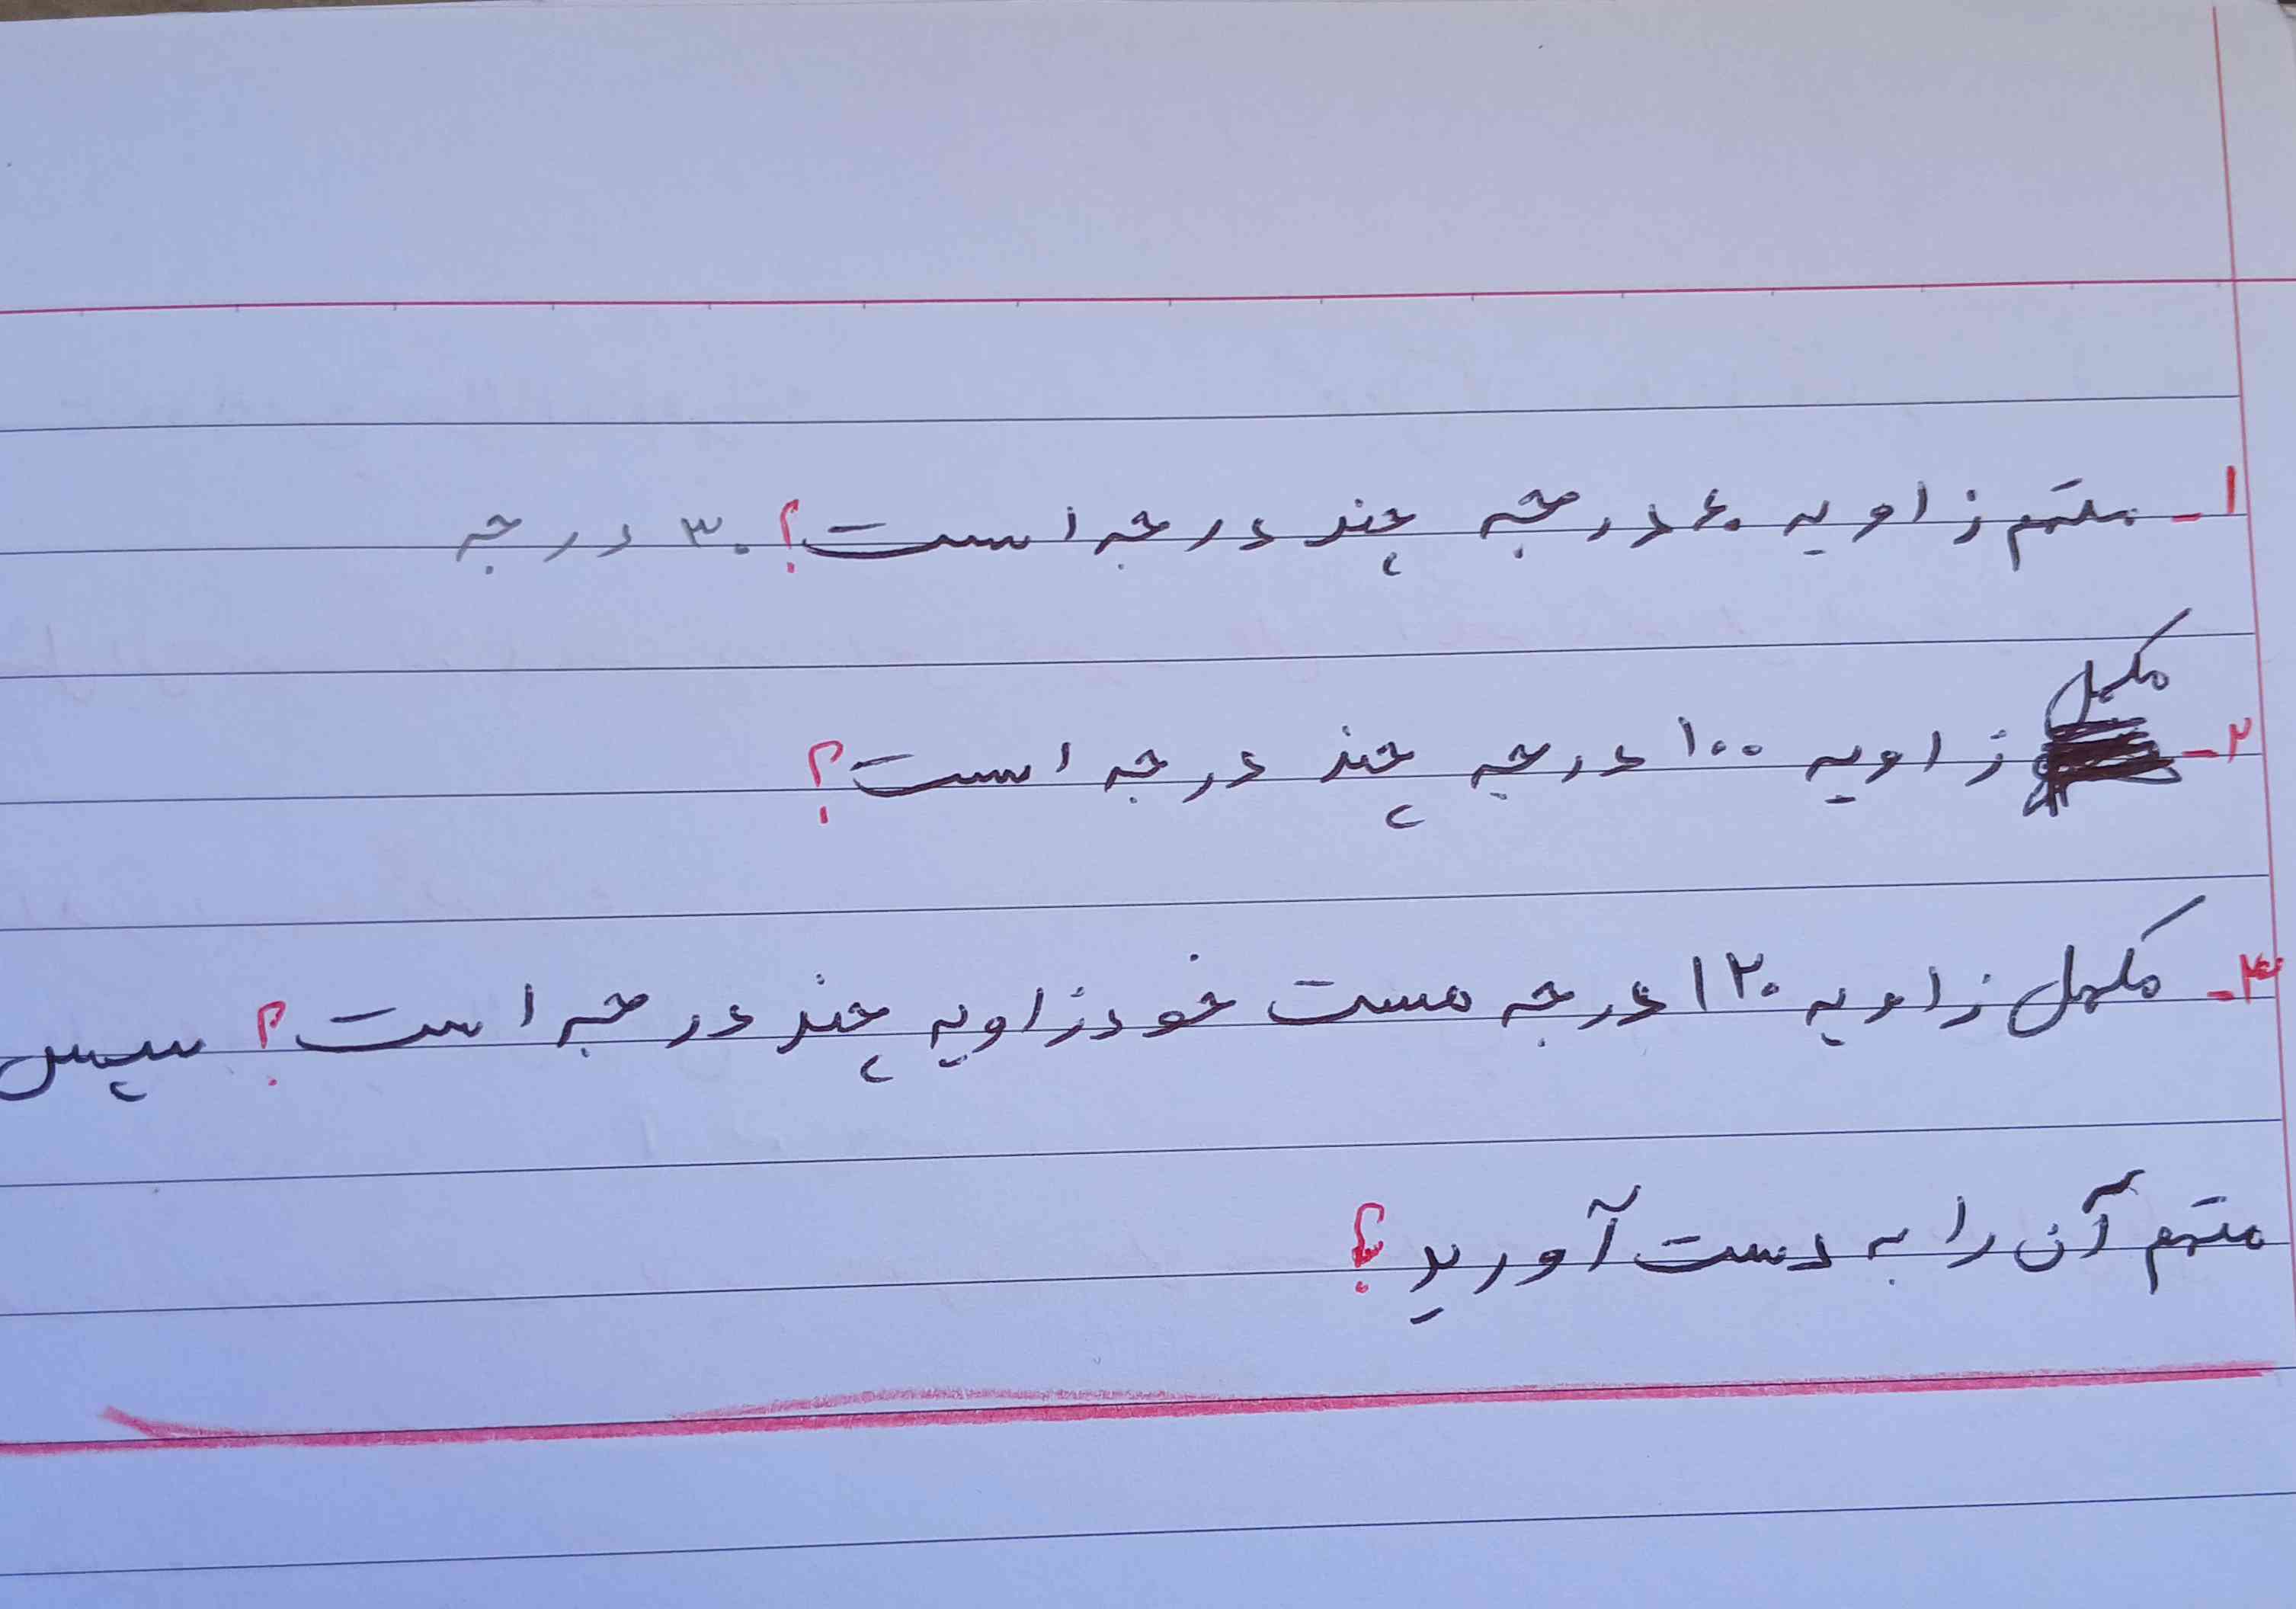 ۱- متمم زاویه ۶۰ درجه چند درجه است؟ ۳۰ درجه
۲- مکمل زاویه ۱۰۰ درجه چند درجه است؟
۳- مکمل زاویه ۱۲۰ درجه هست خود زاویه چند درجه است؟ سپس
متمم آن را به دست آورید؟